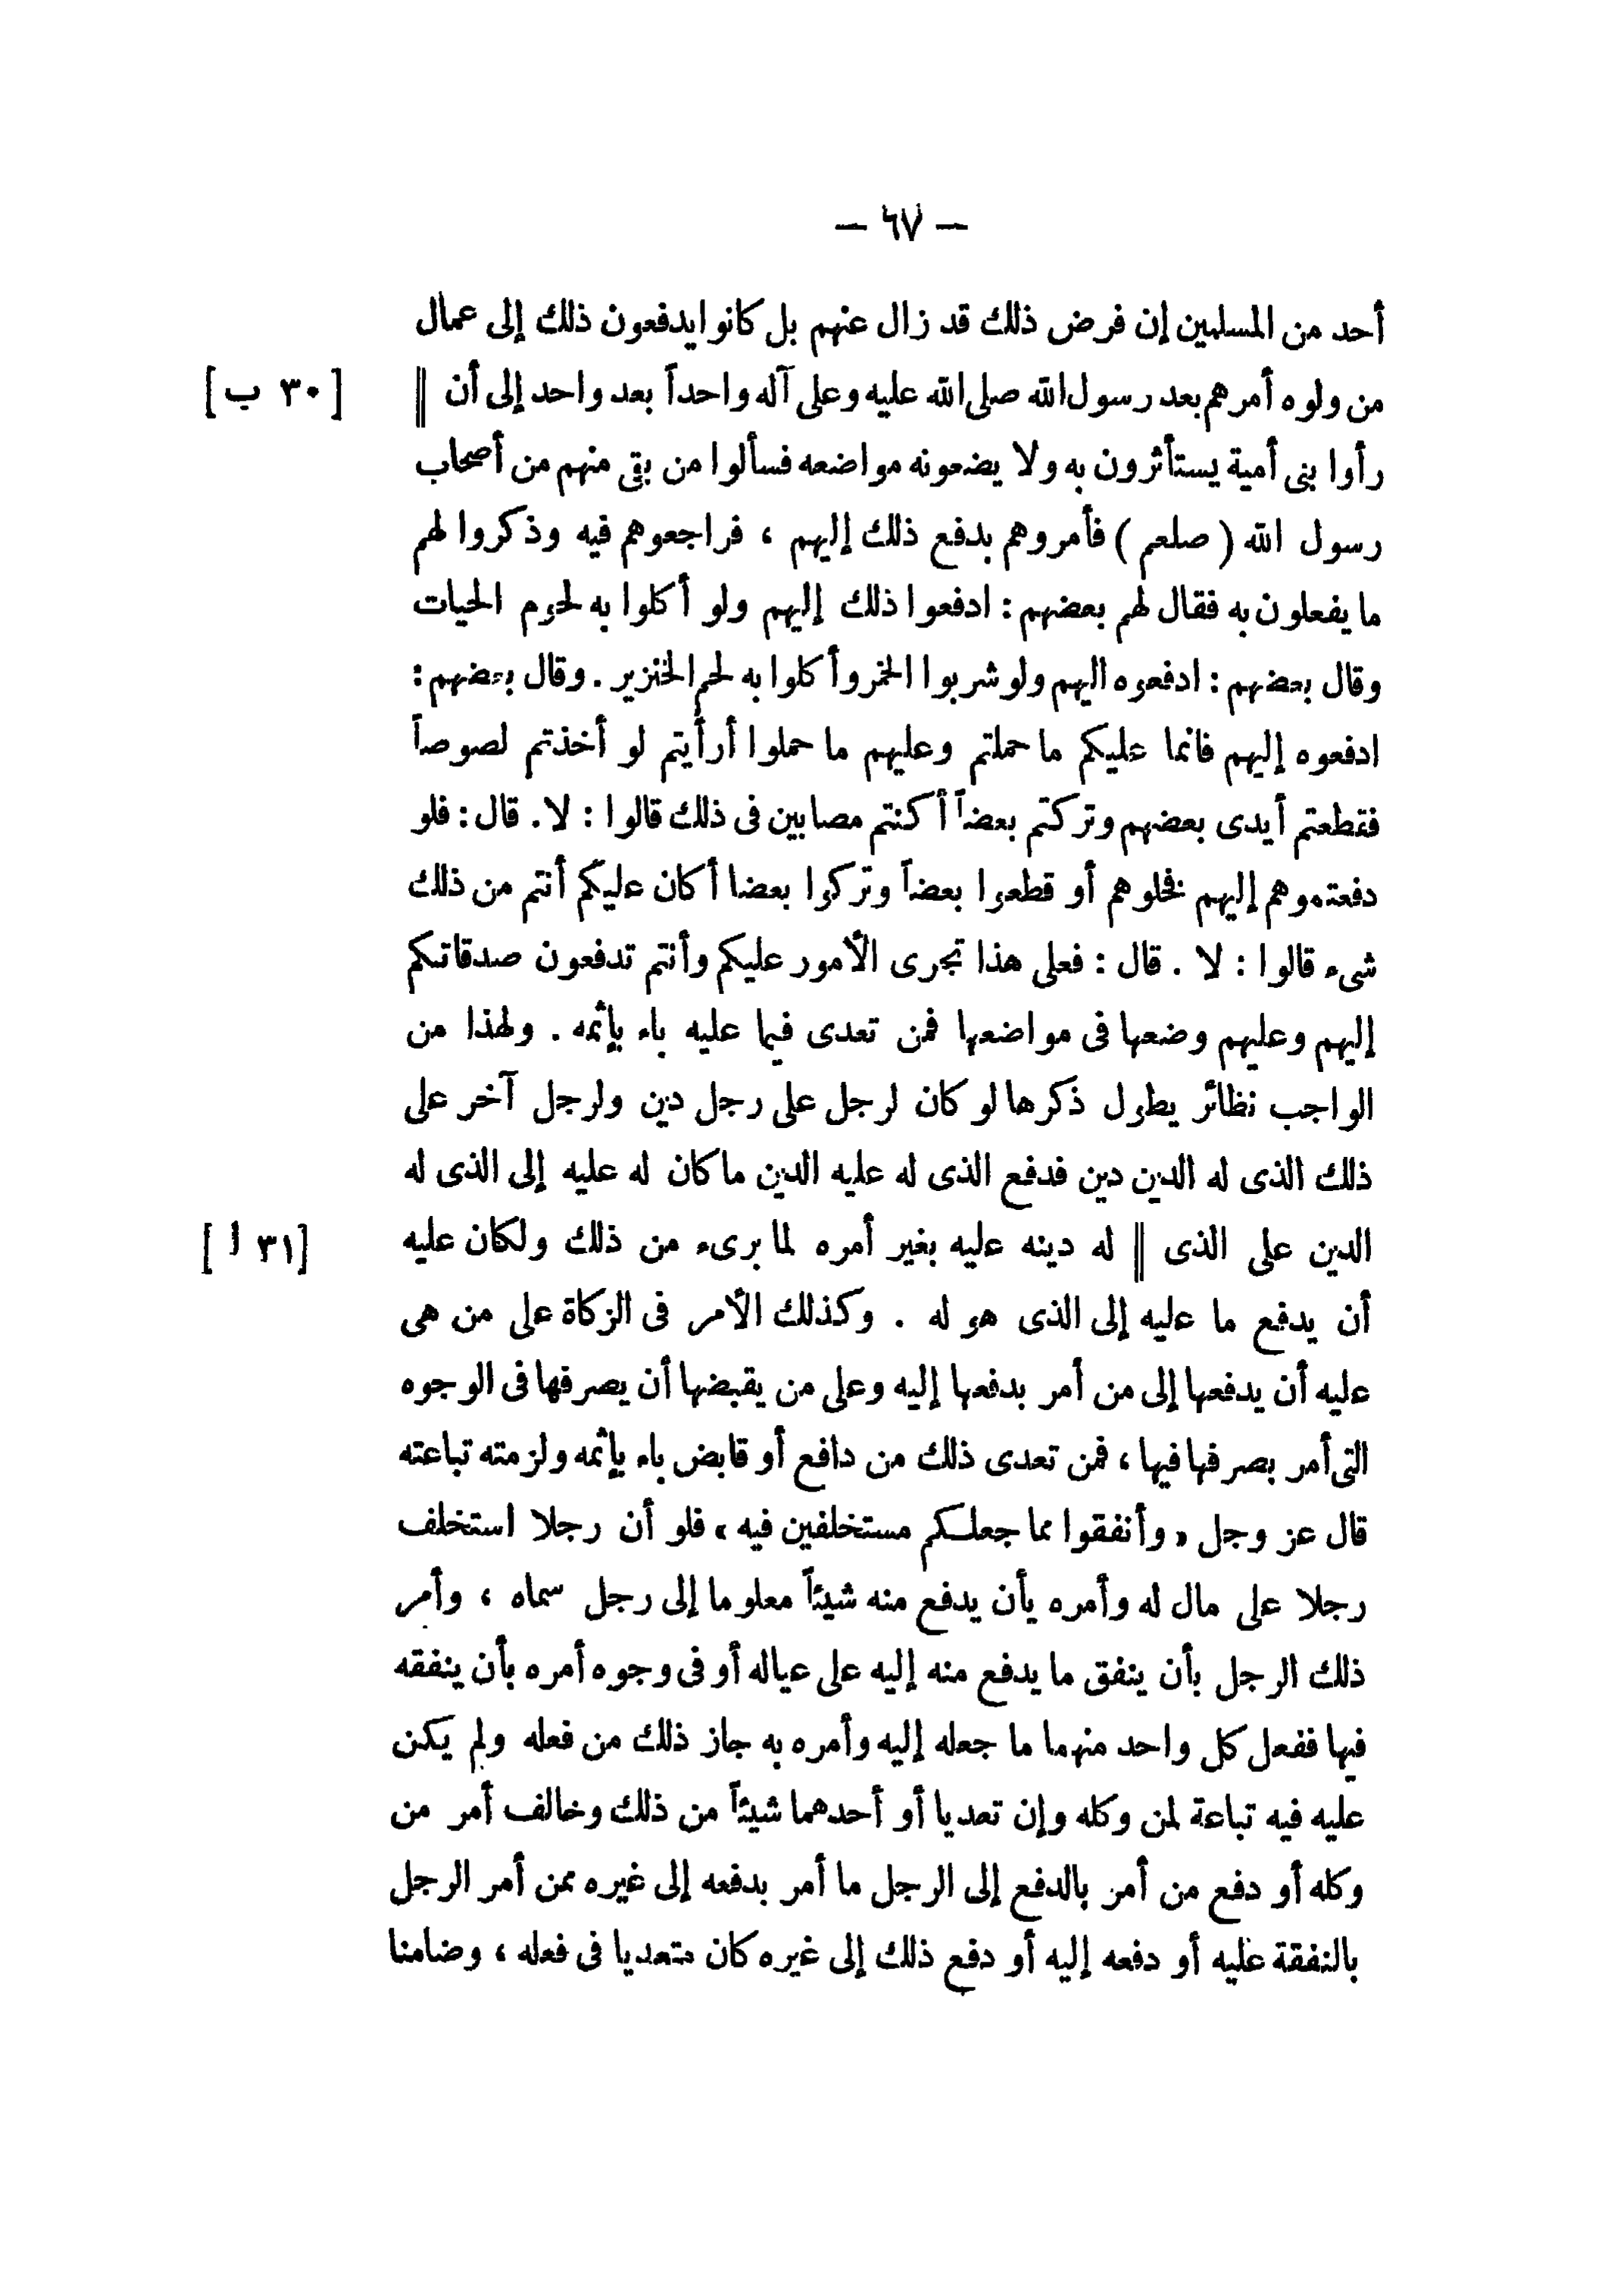 — ٦٧ —
أحد من المسلمين إن فرض ذلك قد زال عنهم بل كانوا يدفعون ذلك إلى عمال
من ولوه أمرهم بعد رسول الله صلى الله عليه وعلى آله واحداً بعد واحد إلى أن || [ ٣٠ ب ]
رأوا بنى أمية يستأثرون به ولا يضعونه مواضعه فسألوا من بقى منهم من أصحاب
رسول الله ( صلعم ) فأمروهم بدفع ذلك إليهم ، فراجعوهم فيه وذكروا لهم
ما يفعلون به فقال لهم بعضهم : ادفعوا ذلك إليهم ولو أكلوا به لحوم الحيات
وقال بعضهم : ادفعوه اليهم ولو شربوا الخمر وأكلوا به لحم الخنزير . وقال بعضهم :
ادفعوه إليهم فانما عليكم ما حملتم وعليهم ما حملوا أرأيتم لو أخذتم لصوصاً
فقطعتم أيدى بعضهم وتركتم بعضاً أكنتم مصابين فى ذلك قالوا : لا . قال : فلو
دفعتموهم إليهم فخلوهم أو قطعوا بعضاً وتركوا بعضا أكان عليكم أنتم من ذلك
شىء قالوا : لا . قال : فعلى هذا تجرى الأمور عليكم وأنتم تدفعون صدقاتكم
إليهم وعليهم وضعها فى مواضعها فمن تعدى فيما عليه باء بإثمه . ولهذا من
الواجب نظائر يطول ذكرها لو كان لرجل على رجل دين ولرجل آخر على
ذلك الذى له الدين دين فدفع الذى له عليه الدين ما كان له عليه إلى الذى له
الدين على الذى || له دينه عليه بغير أمره لما برىء من ذلك ولكان عليه [ ٣١ أ ]
أن يدفع ما عليه إلى الذى هو له . وكذلك الأمر فى الزكاة على من هى
عليه أن يدفعها إلى من أمر بدفعها إليه وعلى من يقبضها أن يصرفها فى الوجوه
التى أمر بصرفها فيها ، فمن تعدى ذلك من دافع أو قابض باء بإثمه ولزمته تباعته
قال عز وجل « وأنفقوا مما جعلكم مستخلفين فيه » فلو أن رجلا استخلف
رجلا على مال له وأمره بأن يدفع منه شيئاً معلوما إلى رجل سماه ، وأمر
ذلك الرجل بأن ينفق ما يدفع منه إليه على عياله أو فى وجوه أمره بأن ينفقه
فيها ففعل كل واحد منهما ما جعله إليه وأمره به جاز ذلك من فعله ولم يكن
عليه فيه تباعة لمن وكله وإن تعديا أو أحدهما شيئاً من ذلك وخالف أمر من
وكله أو دفع من أمر بالدفع إلى الرجل ما أمر بدفعه إلى غيره ممن أمر الرجل
بالنفقة عليه أو دفعه إليه أو دفع ذلك إلى غيره كان متعديا فى فعله ، وضامنا